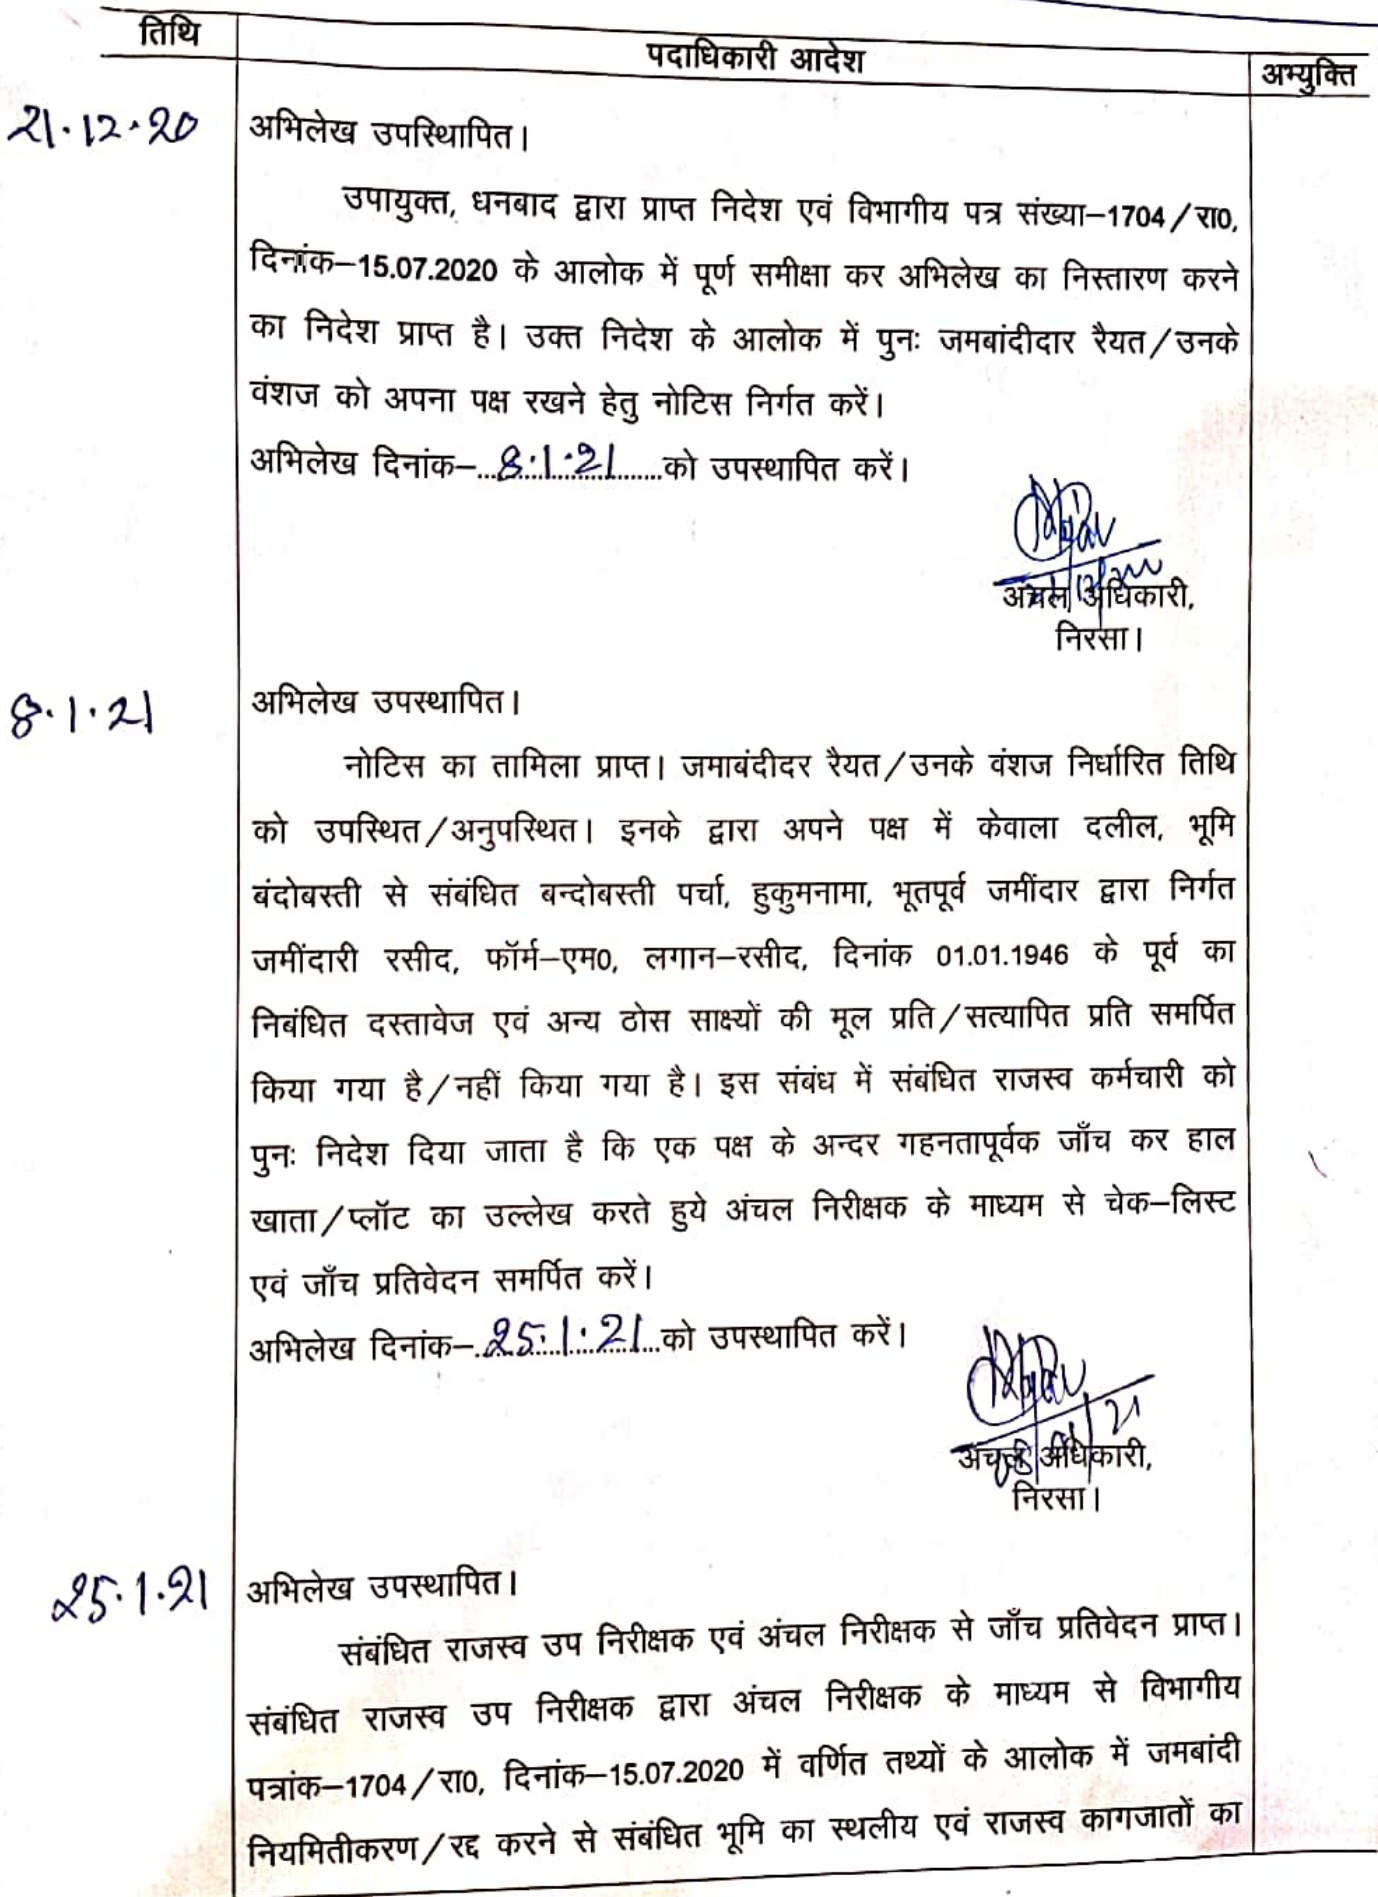 तिथि
पदाधिकारी आदेश
अभ्युक्ति
21.12.20
अभिलेख उपस्थापित।
उपायुक्त, धनबाद द्वारा प्राप्त निदेश एवं विभागीय पत्र संख्या–1704/रा0,
दिनांक–15.07.2020 के आलोक में पूर्ण समीक्षा कर अभिलेख का निस्तारण करने
का निदेश प्राप्त है। उक्त निदेश के आलोक में पुनः जमबांदीदार रैयत/उनके
वंशज को अपना पक्ष रखने हेतु नोटिस निर्गत करें।
अभिलेख दिनांक–...8.1.21...को उपस्थापित करें।
अंचल अधिकारी,
निरसा।
8.1.21
अभिलेख उपस्थापित।
नोटिस का तामिला प्राप्त। जमाबंदीदर रैयत/उनके वंशज निर्धारित तिथि
को उपस्थित/अनुपस्थित। इनके द्वारा अपने पक्ष में केवाला दलील, भूमि
बंदोबस्ती से संबंधित बन्दोबस्ती पर्चा, हुकुमनामा, भूतपूर्व जमींदार द्वारा निर्गत
जमींदारी रसीद, फॉर्म–एम0, लगान–रसीद, दिनांक 01.01.1946 के पूर्व का
निबंधित दस्तावेज एवं अन्य ठोस साक्ष्यों की मूल प्रति/सत्यापित प्रति समर्पित
किया गया है/नहीं किया गया है। इस संबंध में संबंधित राजस्व कर्मचारी को
पुनः निदेश दिया जाता है कि एक पक्ष के अन्दर गहनतापूर्वक जाँच कर हाल
खाता/प्लॉट का उल्लेख करते हुये अंचल निरीक्षक के माध्यम से चेक–लिस्ट
एवं जाँच प्रतिवेदन समर्पित करें।
अभिलेख दिनांक–...25.1.21...को उपस्थापित करें।
अंचल अधिकारी,
निरसा।
25.1.21
अभिलेख उपस्थापित।
संबंधित राजस्व उप निरीक्षक एवं अंचल निरीक्षक से जाँच प्रतिवेदन प्राप्त।
संबंधित राजस्व उप निरीक्षक द्वारा अंचल निरीक्षक के माध्यम से विभागीय
पत्रांक–1704/रा0, दिनांक–15.07.2020 में वर्णित तथ्यों के आलोक में जमबांदी
नियमितीकरण/रद्द करने से संबंधित भूमि का स्थलीय एवं राजस्व कागजातों का